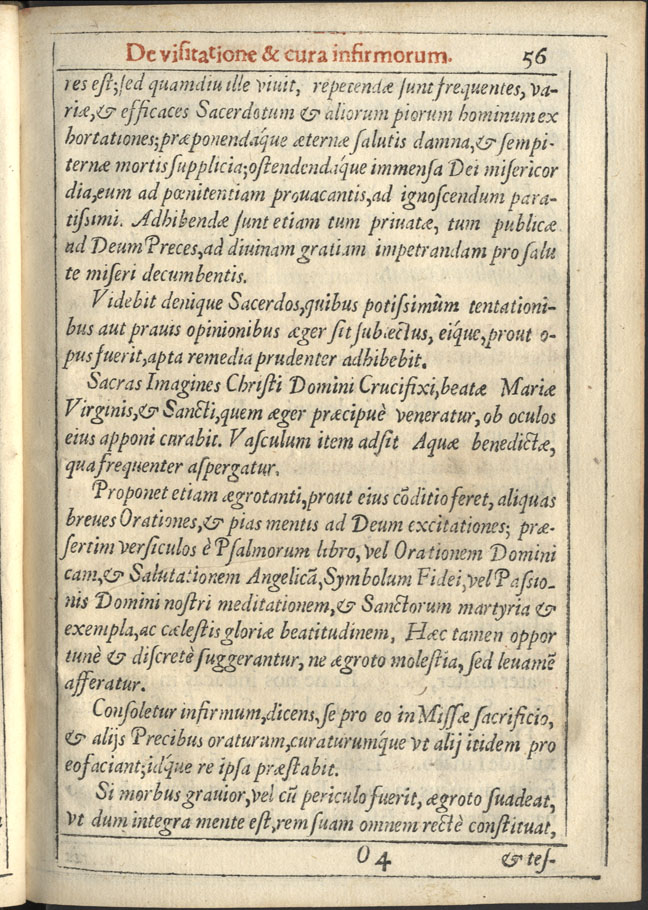 De visitatione & cura infirmorum. 56
res est; sed quamdiu ille viuit, repetendæ sunt frequentes, va-
riæ, & efficaces Sacerdotum & aliorum piorum hominum ex
hortationes; præponendáque æternæ salutis damna, & sempi-
ternæ mortis supplicia; ostendendáque immensa Dei misericor
dia, eum ad pœnitentiam prouacantis, ad ignoscendum para-
tissimi. Adhibendæ sunt etiam tum priuatæ, tum publicæ
ad Deum Preces, ad diuinam gratiam impetrandam pro salu
te miseri decumbentis.
Videbit denique Sacerdos, quibus potissimùm tentationi-
bus aut prauis opinionibus æger sit subiectus, eíque, prout o-
pus fuerit, apta remedia prudenter adhibebit.
Sacras Imagines Christi Domini Crucifixi, beatæ Mariæ
Virginis, & Sancti, quem æger præcipuè veneratur, ob oculos
eius apponi curabit. Vasculum item adsit Aquæ benedictæ,
qua frequenter aspergatur.
Proponet etiam ægrotanti, prout eius cōditio feret, aliquas
breues Orationes, & pias mentis ad Deum excitationes; præ-
sertim versiculos è Psalmorum libro, vel Orationem Domini
cam, & Salutationem Angelicā, Symbolum Fidei, vel Passio-
nis Domini nostri meditationem, & Sanctorum martyria &
exempla, ac cælestis gloriæ beatitudinem, Hæc tamen oppor
tunè & discretè suggerantur, ne ægroto molestia, sed leuamē
afferatur.
Consoletur infirmum, dicens, se pro eo in Missæ sacrificio,
& alijs Precibus oraturum, curaturumque vt alij itidem pro
eo faciant; idque re ipsa præstabit.
Si morbus grauior, vel cū periculo fuerit, ægroto suadeat,
vt dum integra mente est, rem suam omnem rectè constituat,
O 4 & tes-